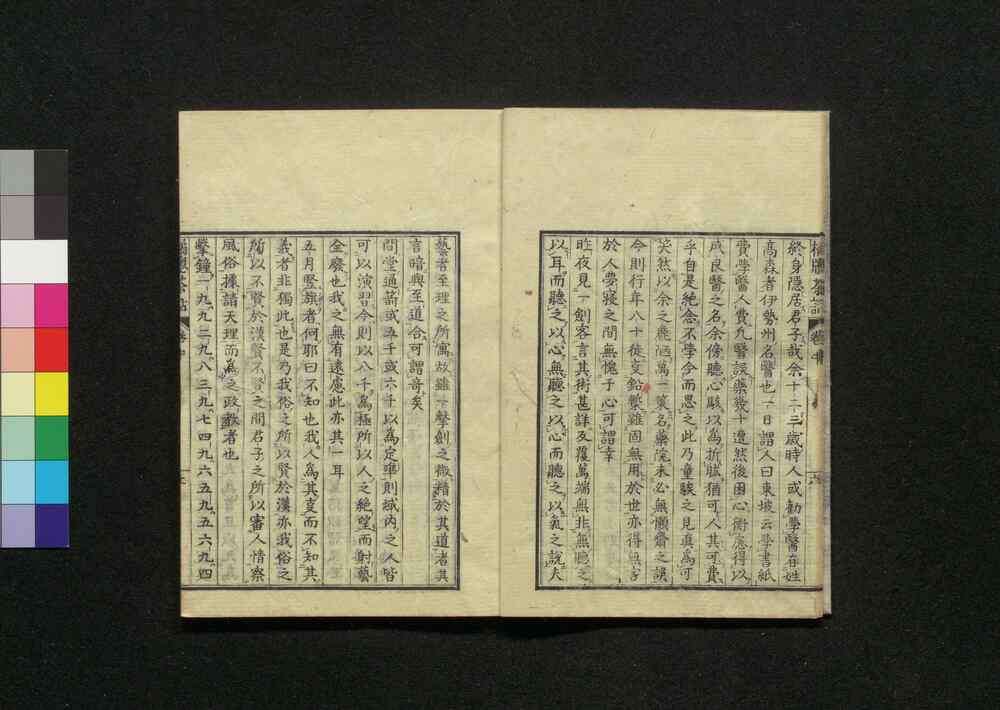 終身隱居君子哉余十二三歲時人或勸學醫存姓
高森者伊勢州名醫也一日謂人曰東坡云學書紙
費學醫人費凡醫誤藥幾十遭然後困心衡慮得以
成良醫之名余傍聽心駭以為折肱猶可人其可費
乎自是絕念不學今而思之此乃童騃之見真為可
笑然以余之疎陋萬一策名藥院未必無懶齋之誤
今則行年八十徒支鉛槧雖固無用於世亦得無害
於人夢寢之間無愧于心可謂幸
昨夜見一劍客言其術甚詳反覆萬端無非無聽之
以耳而聽之以心無聽之以心而聽之以氣之說夫
藝者至理之所寓故雖一擊劍之微精於其道者其
言暗與至道合可謂奇矣
間堂通箭或五千或六千以為定準則域內之人皆
可以演習今則以八千為極所以人之絕望而射藝
全廢也我之無有遠慮此亦其一耳
五月豎旗者何耶曰不知也我人為其變而不知其
義者非獨此也是乃我俗之所以賢於漢亦我俗之
所以不賢於漢賢不賢之間君子之所以審人情察
風俗據諸天理而為之政教者也
擊鐘一九九二九八三九七四九六五九五六九四